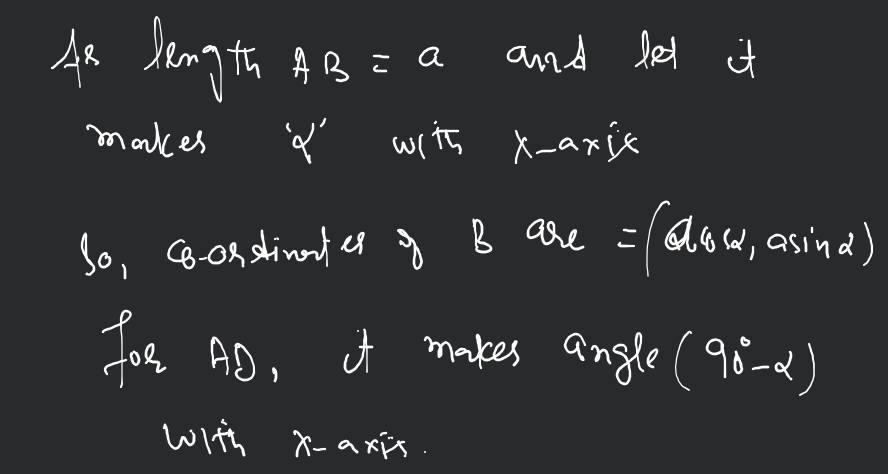 As length AB = a and let it
makes 'α' with x-axis
So, co-ordinates of B are = (a cos α, a sin α)
for AD, it makes angle (90° - α)
with x-axis.